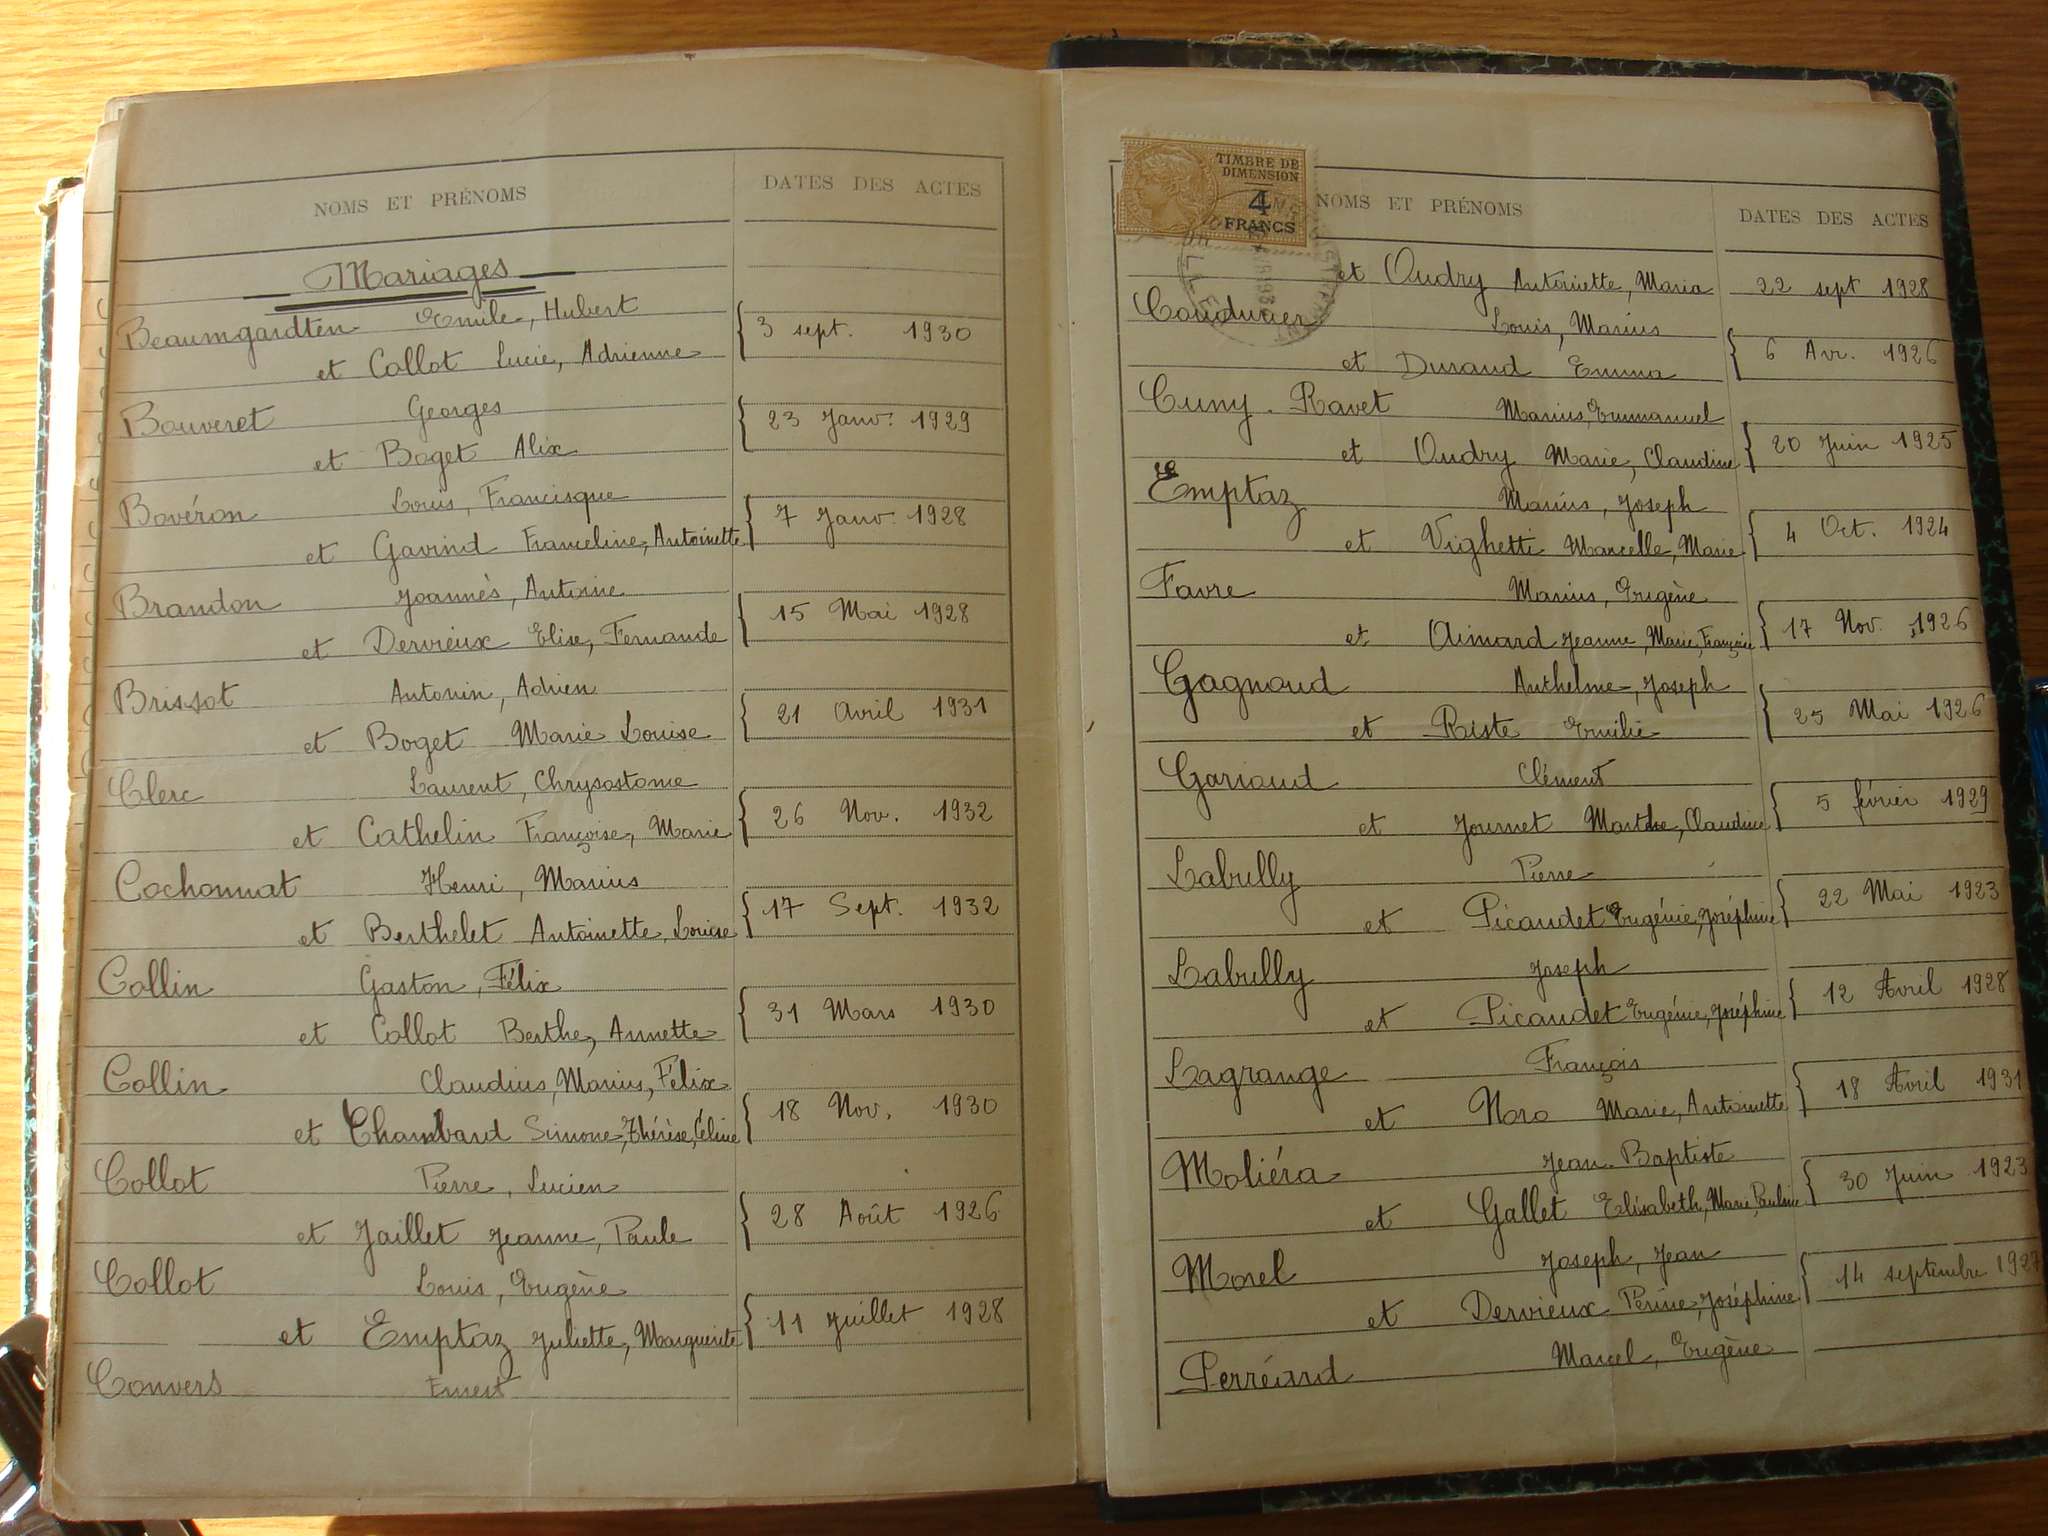 NOMS ET PRÉNOMS DATES DES ACTES
Mariages
Beaumgardten Emile, Hubert
et Collot Lucie, Adrienne 3 sept. 1930
Bouveret Georges
et Boget Alix 23 Janv. 1929
Bovéron Louis, Francisque
et Gavind Franceline, Antoinette 7 Janv. 1928
Brandon Joannès, Antoine
et Dervieux Elise, Fernande 15 Mai 1928
Brissot Antonin, Adrien
et Boget Marie Louise 21 Avril 1931
Clerc Laurent, Chrysostome
et Cathelin Françoise, Marie 26 Nov. 1932
Cochonnat Henri, Marius
et Berthelet Antoinette, Louise 17 Sept. 1932
Collin Gaston, Félix
et Collot Berthe, Annette 31 Mars 1930
Collin Claudius, Marius, Félix
et Chambard Simone, Thérèse, Céline 18 Nov. 1930
Collot Pierre, Lucien
et Jaillet Jeanne, Paule 28 Août 1926
Collot Louis, Eugène
et Emptaz Juliette, Marguerite 11 Juillet 1928
Convers Ernest
TIMBRE DE
DIMENSION
4
FRANCS
NOMS ET PRÉNOMS DATES DES ACTES
et Oudry Antoinette, Maria 22 sept 1928
Coudurier Louis, Marius
et Durand Emma 6 Avr. 1926
Cuny-Ravet Marius, Emmanuel
et Oudry Marie, Claudine 20 Juin 1925
Emptaz Marius, Joseph
et Vighetti Marcelle, Marie 4 Oct. 1924
Favre Marius, Eugène
et Aimard Jeanne, Marie, Françoise 17 Nov. 1926
Gagnoud Anthelme, Joseph
et Riste Emilie 25 Mai 1926
Gariaud Clément
et Journet Marthe, Claudine 5 février 1929
Labully Pierre
et Picaudet Eugénie, Joséphine 22 Mai 1923
Labully Joseph
et Picaudet Eugénie, Joséphine 12 Avril 1928
Lagrange François
et Noro Marie, Antoinette 18 Avril 1931
Moliéra Jean-Baptiste
et Gallet Elisabeth, Marie, Pauline 30 Juin 1923
Morel Joseph, Jean
et Dervieux Perine, Joséphine 14 septembre 1927
Perréard Marcel, Eugène